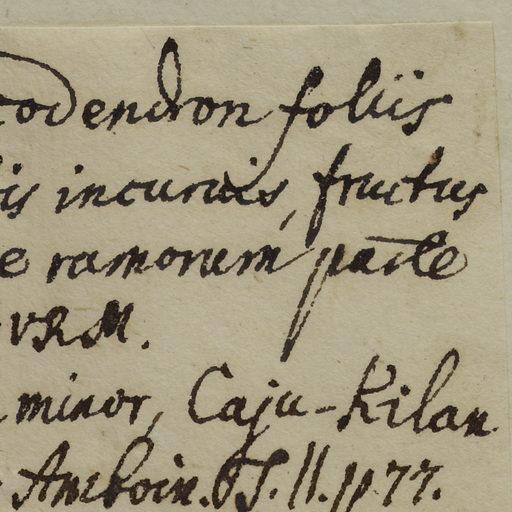 codendron foliis
is incuruis, fructus
e ramorum parte
VRM.
minor, Caju-Kilan
Amboin. T. II. p. 77.